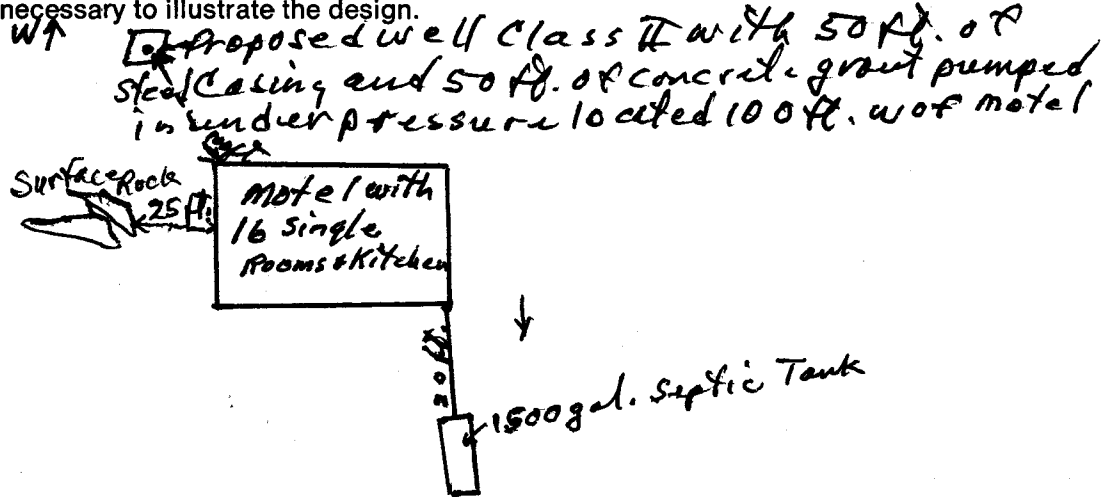 necessary to illustrate the design.
W↑
Proposed well Class II with 50 ft. of
steel Casing and 50 ft. of concrete grout pumped
in under pressure located 100 ft. w of motel
Surface Rock
25 ft.
Motel with
16 Single
Rooms & Kitchen
20 ft.
1500 gal. Septic Tank